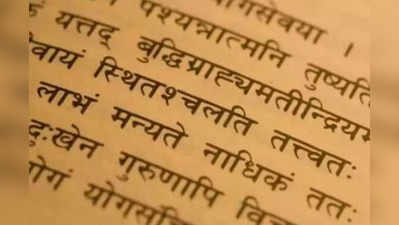 योगसेवया ।
पश्यन्नात्मनि तुष्यति
यत्तद् बुद्धिग्राह्यमतीन्द्रियम
वायं स्थितश्चलति तत्त्वतः
लाभं मन्यते नाधिकं ततः
दुःखेन गुरुणापि विच
योगसं